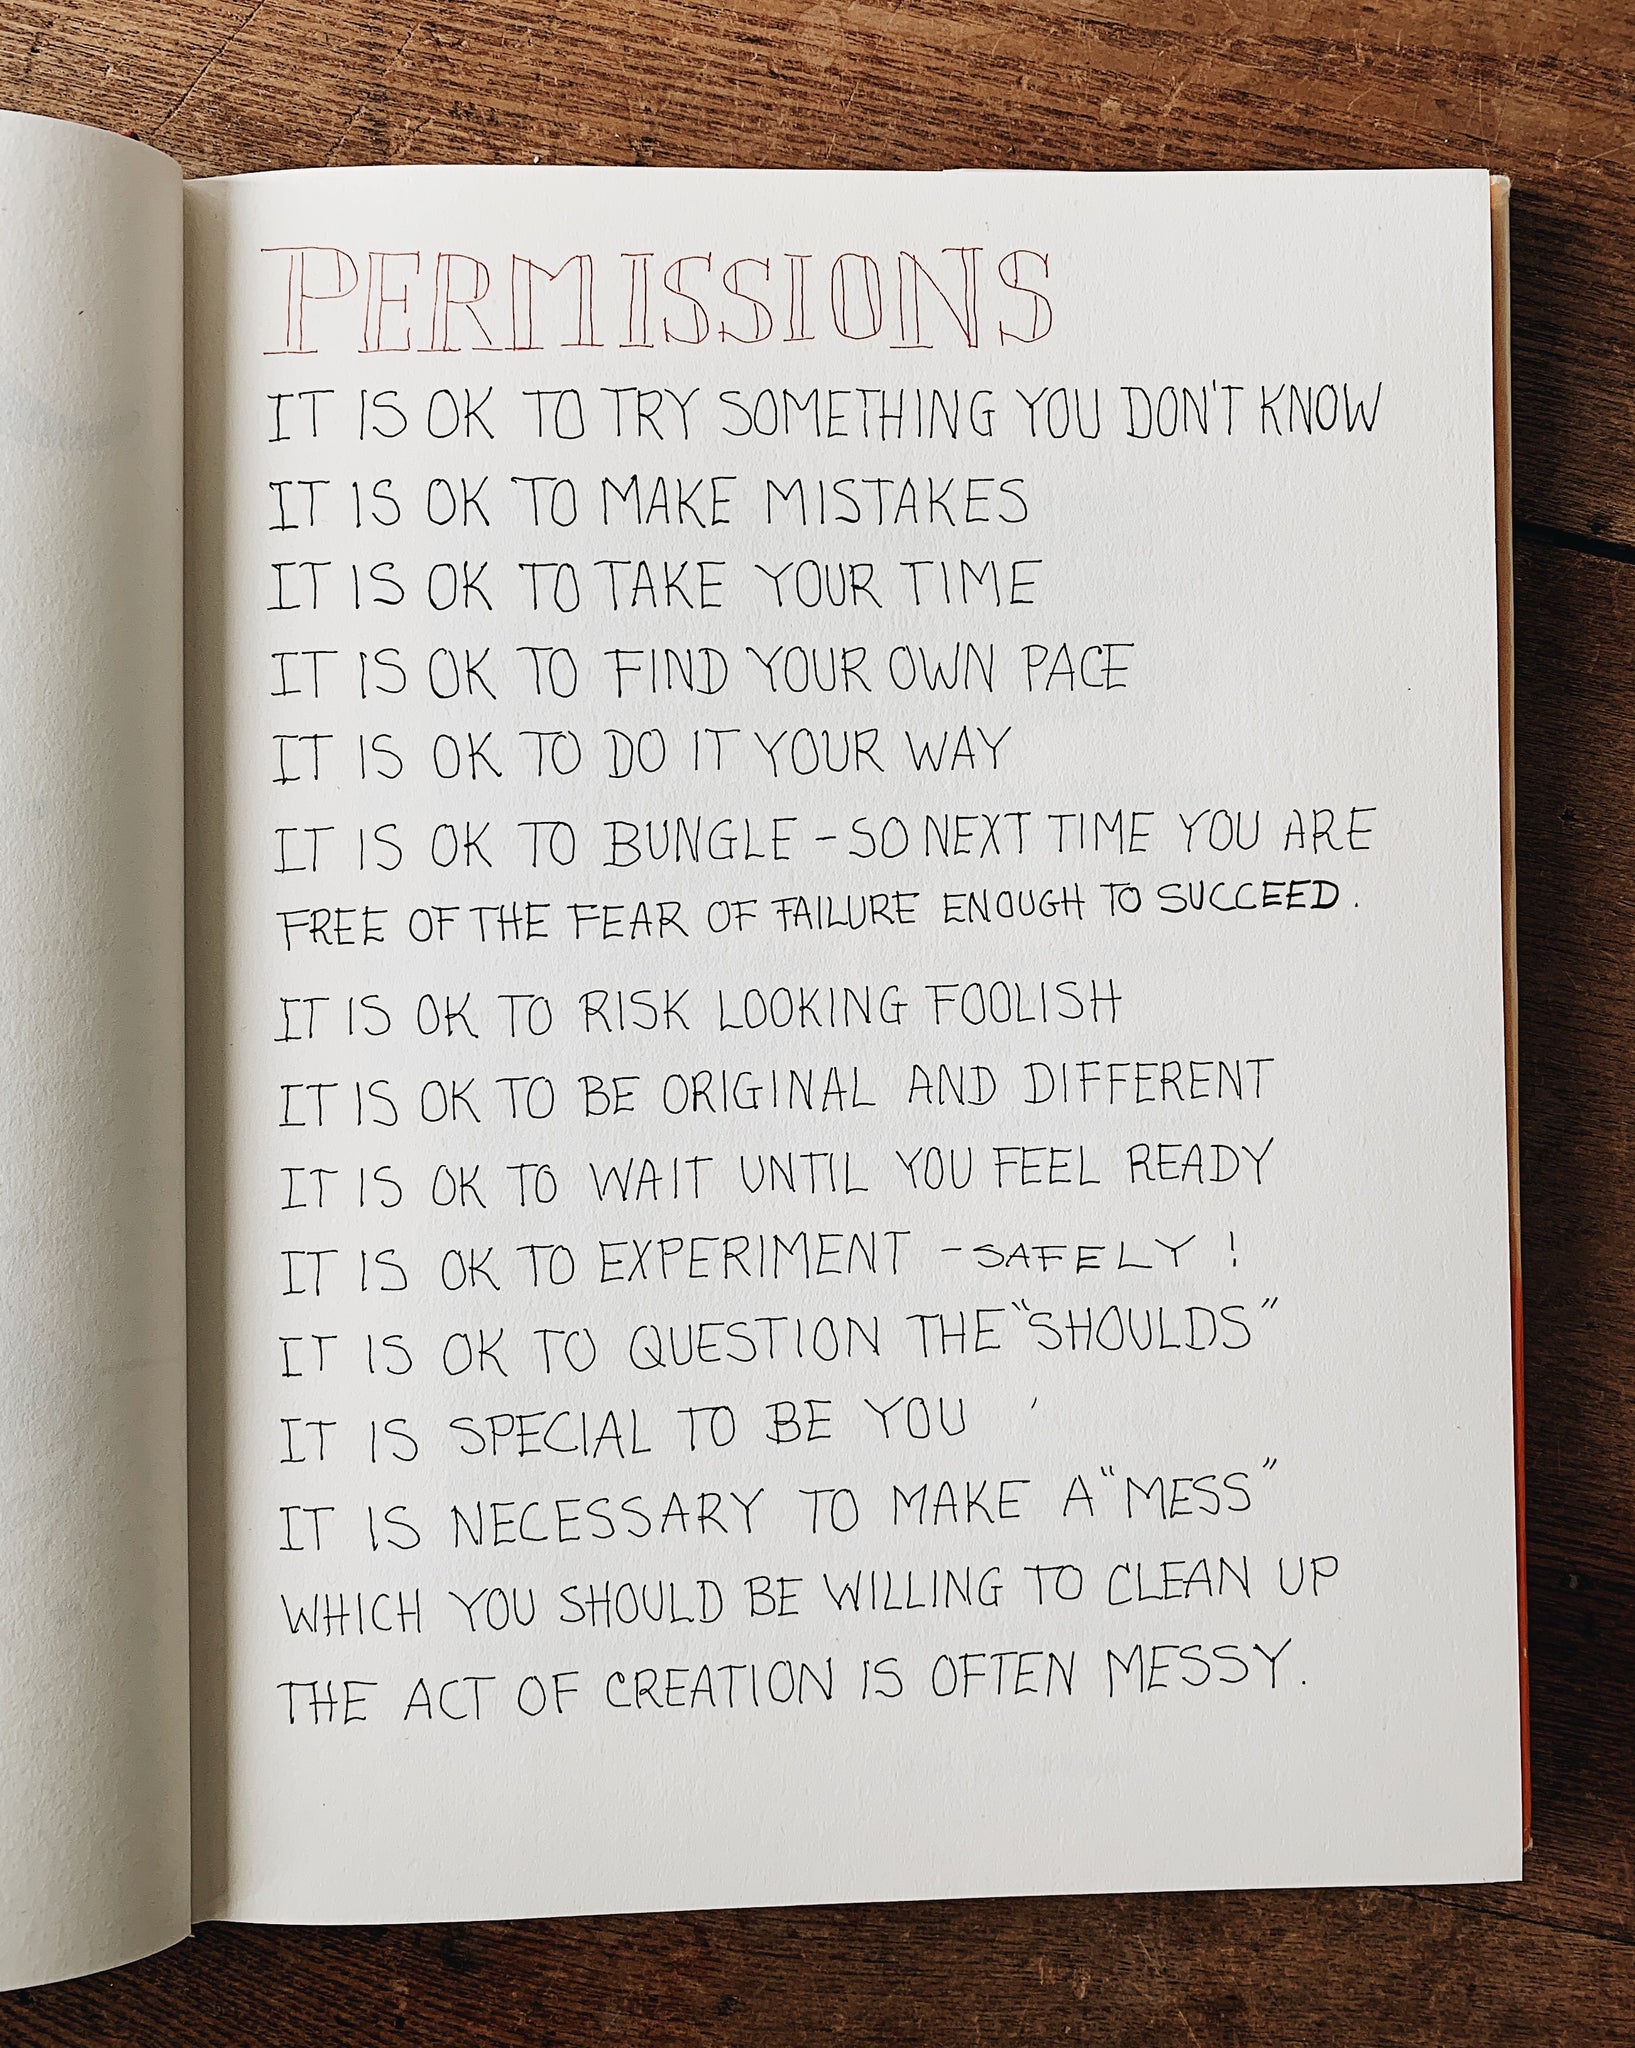 PERMISSIONS
IT IS OK TO TRY SOMETHING YOU DON'T KNOW
IT IS OK TO MAKE MISTAKES
IT IS OK TO TAKE YOUR TIME
IT IS OK TO FIND YOUR OWN PACE
IT IS OK TO DO IT YOUR WAY
IT IS OK TO BUNGLE – SO NEXT TIME YOU ARE
FREE OF THE FEAR OF FAILURE ENOUGH TO SUCCEED.
IT IS OK TO RISK LOOKING FOOLISH
IT IS OK TO BE ORIGINAL AND DIFFERENT
IT IS OK TO WAIT UNTIL YOU FEEL READY
IT IS OK TO EXPERIMENT – SAFELY !
IT IS OK TO QUESTION THE "SHOULDS"
IT IS SPECIAL TO BE YOU
IT IS NECESSARY TO MAKE A "MESS"
WHICH YOU SHOULD BE WILLING TO CLEAN UP
THE ACT OF CREATION IS OFTEN MESSY.